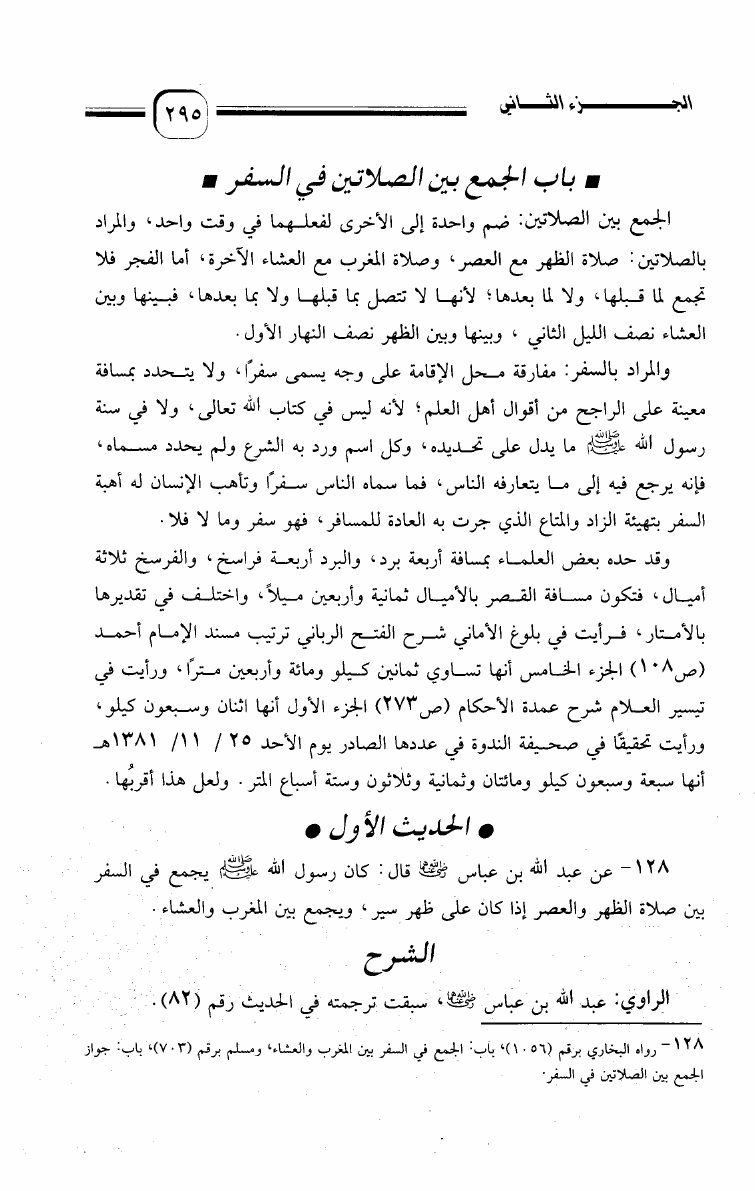 الجـــزء الثـــاني
٢٩٥
▪ باب الجمع بين الصلاتين في السفر ▪
الجمع بين الصلاتين: ضم واحدة إلى الأخرى لفعلـهما في وقت واحد، والمراد
بالصلاتين: صلاة الظهر مع العصر، وصلاة المغرب مع العشاء الآخرة، أما الفجر فلا
تجمع لما قـبلها، ولا لما بعدها؛ لأنهـا لا تتصل بما قبلهـا ولا بما بعدها، فـبينها وبين
العشاء نصف الليل الثاني ، وبينها وبين الظهر نصف النهار الأول.
والمراد بالسفر: مفارقة مـحل الإقامة على وجه يسمى سفرًا، ولا يتـحدد بمسافة
معينة على الراجح من أقوال أهل العلم؛ لأنه ليس في كتاب الله تعالى، ولا في سنة
رسول الله ﷺ ما يدل على تحـديده، وكل اسم ورد به الشرع ولم يحدد مسـماه،
فإنه يرجع فيه إلى مـا يتعارفه الناس، فما سماه الناس سـفرًا وتأهب الإنسان له أهبة
السفر بتهيئة الزاد والمتاع الذي جرت به العادة للمسافر، فهو سفر وما لا فلا.
وقد حده بعض العلمـاء بمسافة أربعة برد، والبرد أربعـة فراسخ، والفرسخ ثلاثة
أميـال، فتكون مسـافة القـصر بالأميال ثمانية وأربعين مـيلاً، واختلـف في تقديرها
بالأمـتار، فـرأيت في بلوغ الأماني شـرح الفتـح الرباني ترتيب مسند الإمـام أحمـد
(ص١٠٨) الجزء الخـامس أنها تسـاوي ثمانين كـيلو ومائة وأربعين مـترًا، ورأيت في
تيسير العـلام شرح عمدة الأحكام (ص٢٧٣) الجزء الأول أنها اثنان وسـبعون كيلو،
ورأيت تحقيقًا في صحـيفة الندوة في عددها الصادر يوم الأحد ٢٥ / ١١ / ١٣٨١هـ
أنها سبعة وسبعون كيلو ومائتان وثمانية وثلاثون وستة أسباع المتر . ولعل هذا أقربُها .
● الحديث الأول ●
١٢٨- عن عبد الله بن عباس رضي الله عنهما قال: كان رسول الله ﷺ يجمع في السفر
بين صلاة الظهر والعصر إذا كان على ظهر سير، ويجمع بين المغرب والعشاء.
الشرح
الراوي: عبد الله بن عباس رضي الله عنهما، سبقت ترجمته في الحديث رقم (٨٢).
١٢٨- رواه البخاري برقم (١٠٥٦)، باب: الجمع في السفر بين المغرب والعشاء، ومسلم برقم (٧٠٣)، باب: جواز
الجمع بين الصلاتين في السفر.